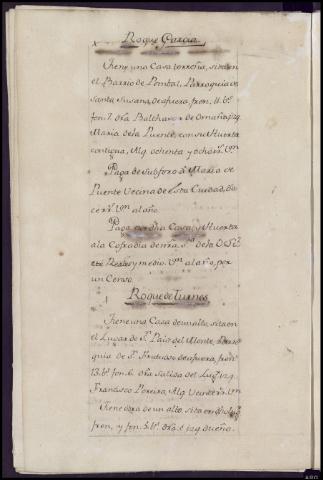 Roque Garcia
Tiene una Casa terreña, sita en
el Barrio de Pombal, Parroquia de
Santa Susana, de afuera, fron. 11. v.s
fon. 7. dra Balthasar de Ornaña, yzq.
Maria dela Puente, con su Huerta
contigua, Alq. ochenta y ocho rr.s v.on
Paga de Subforo a Maria de
Puente Vecina de esta Ciudad,
rr.s v.on al año.
Paga por dha Casa, y Huerta
ala Cofradia de nra. S.ra de la O. Sete
Reales y medio v.on al año, por
un Censo.
Roque de Turnes
Tiene una Casa de un alto, sita en
el Lugar de S.n Paio del Monte, Parro
quia de S.n Frutuoso de afuera, fron.
13. v.s fon. 6. dra Salida del Lug.r yzq.
Francisco Pereira, Alq. Veinte rr.s v.on
Tiene otra de un alto, sita en dho Lug.r
fron. y fon. 5. v.s dra. e yzq. dueño.